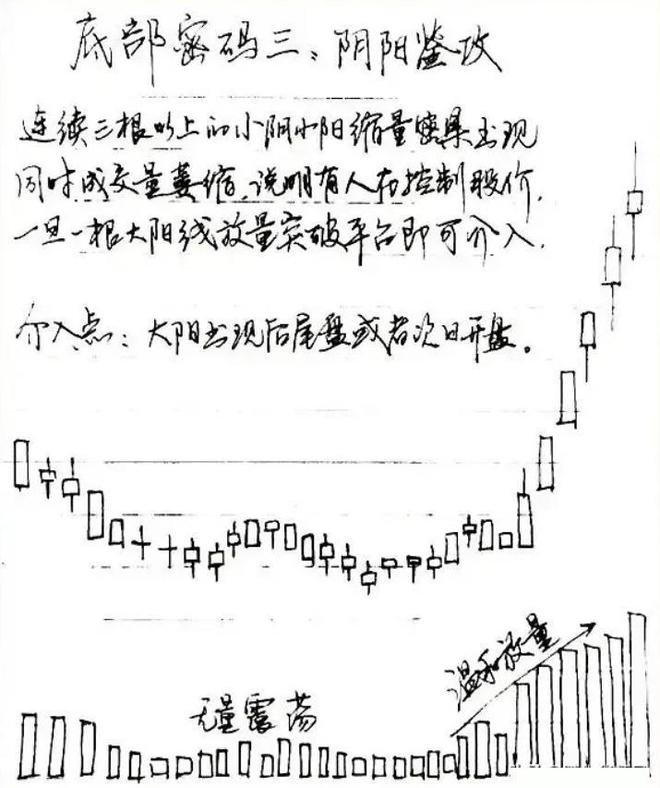 底部密码三、阴阳鉴攻
连续三根以上的小阴小阳缩量密集出现
同时成交量萎缩,说明有人在控制股价,
一旦一根大阳线放量突破平台即可介入.
介入点:大阳出现后尾盘或者次日开盘。
温和放量
无量震荡